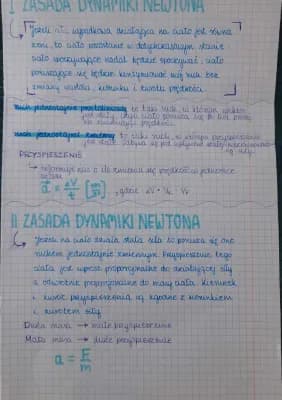 I ZASADA DYNAMIKI NEWTONA
Jeżeli siła wypadkowa działająca na ciało jest równa
zero, to ciało pozostanie w dotychczasowym stanie
ciało spoczywające nadal będzie spoczywać, ciało
poruszające się będzie kontynuować swój ruch bez
zmiany wartości, kierunku i zwrotu prędkości.
ruch jednostajnie prostoliniowy to taki ruch, w którym
jest stały, ciało porusza się po linii prostej
ruch jednostajnie zmienny to taki ruch, w którym przyspieszenie
jest stałe
PRZYSPIESZENIE
informuje nas o ile zmienia się prędkość w jednostce
czasu
a = ΔV/t [m/s²], gdzie ΔV =
II ZASADA DYNAMIKI NEWTONA
Jeżeli na ciało działa stała siła to porusza się ono
ruchem jednostajnie zmiennym. Przyspieszenie tego
ciała jest wprost proporcjonalne do działającej siły
a odwrotnie proporcjonalne do masy ciała. Kierunek
i zwrot przyspieszenia są zgodne z kierunkiem
i zwrotem siły.
Duża masa → małe przyspieszenie
Mała masa → duże przyspieszenie
a = F/m